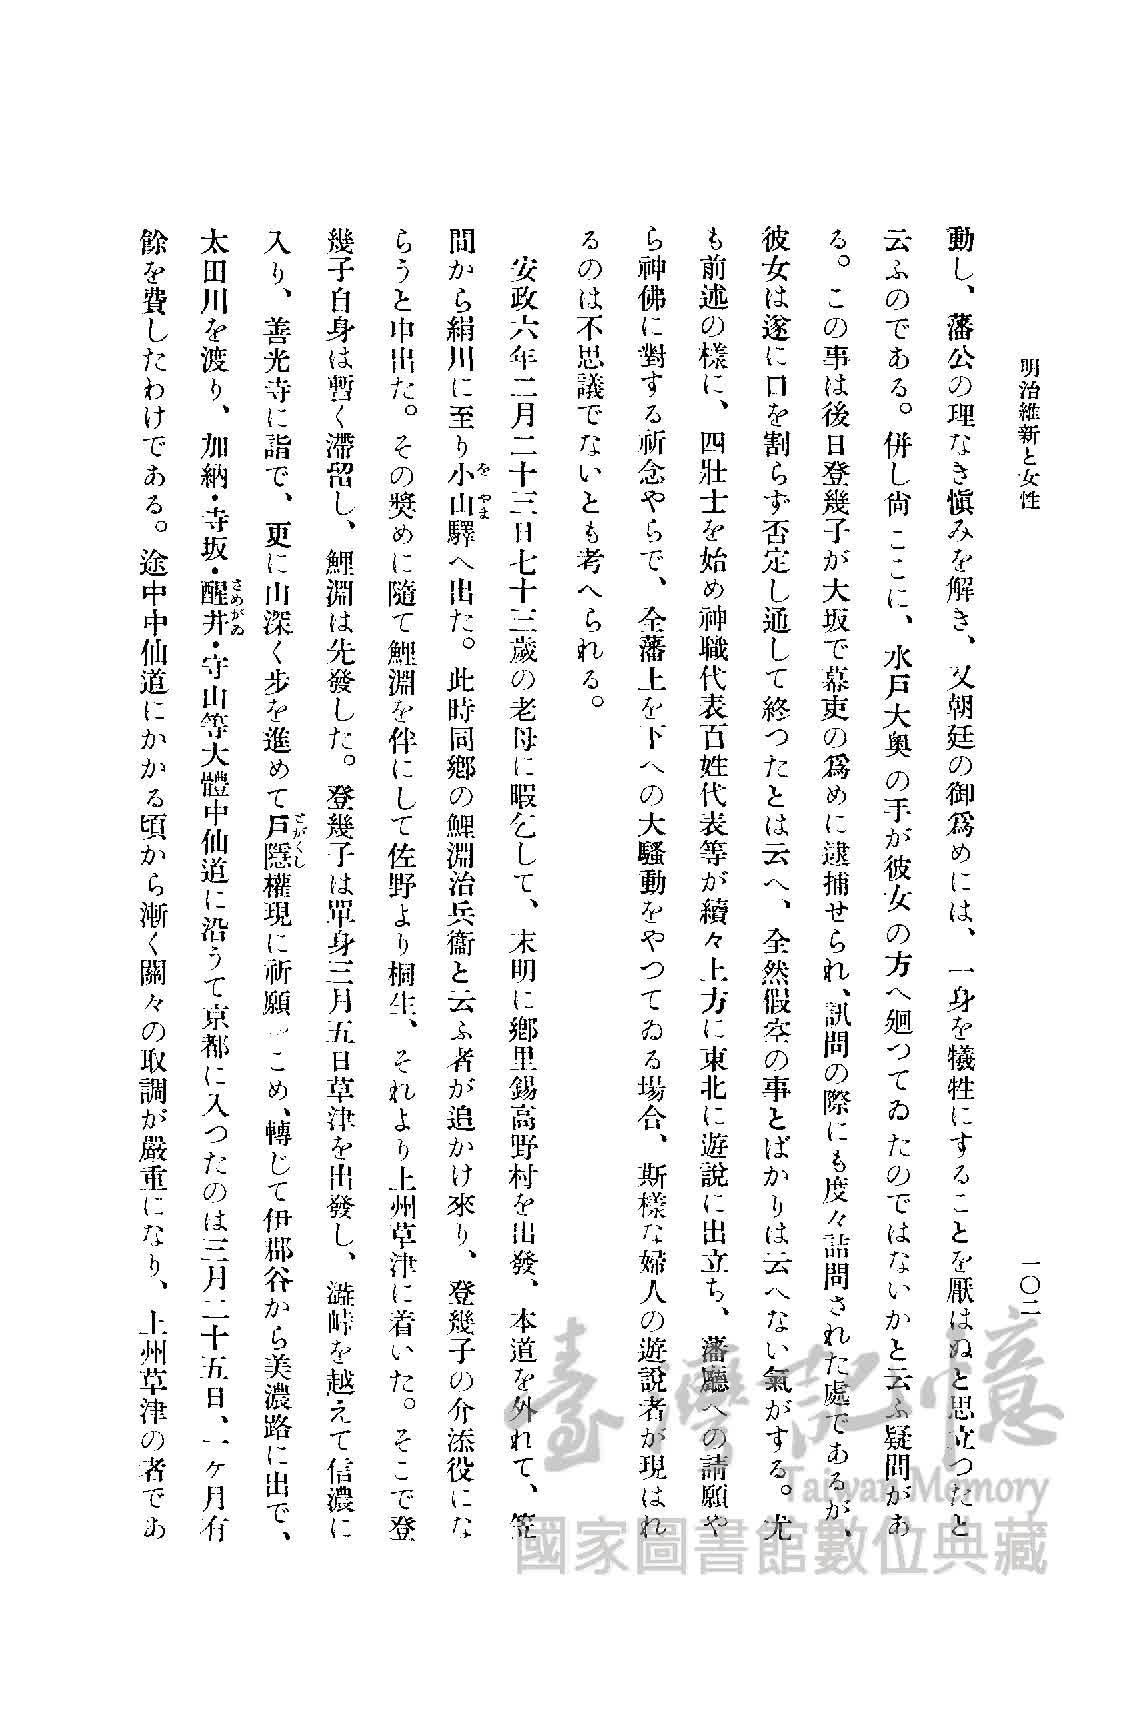 明治維新と女性
一〇二
動し、藩公の理なき愼みを解き、又朝廷の御爲めには、一身を犠牲にすることを厭はぬと思立つたと
云ふのである。併し尙ここに、水戸大奥の手が彼女の方へ廻つてゐたのではないかと云ふ疑問があ
る。この事は後日登幾子が大坂で幕吏の爲めに逮捕せられ、訊問の際にも度々詰問された處であるが、
彼女は遂に口を割らず否定し通して終つたとは云へ、全然假空の事とばかりは云へない氣がする。尤
も前述の樣に、四壯士を始め神職代表百姓代表等が續々上方に東北に遊說に出立ち、藩廳への請願や
ら神佛に對する祈念やらで、全藩上を下への大騷動をやつてゐる場合、斯樣な婦人の遊說者が現はれ
るのは不思議でないとも考へられる。
安政六年二月二十三日七十三歲の老母に暇乞して、未明に鄕里錫高野村を出發、本道を外れて、笠
間から絹川に至り小山驛へ出た。此時同鄕の鯉淵治兵衞と云ふ者が追かけ來り、登幾子の介添役にな
らうと申出た。その奬めに隨て鯉淵を伴にして佐野より桐生、それより上州草津に着いた。そこで登
幾子自身は暫く滯留し、鯉淵は先發した。登幾子は單身三月五日草津を出發し、澁峠を越えて信濃に
入り、善光寺に詣で、更に山深く步を進めて戸隱權現に祈願一こめ、轉じて伊郡谷から美濃路に出で、
太田川を渡り、加納・寺坂・醒井・守山等大體中仙道に沿うて京都に入つたのは三月二十五日、一ケ月有
餘を費したわけである。途中中仙道にかかる頃から漸く關々の取調が嚴重になり、上州草津の者であ
をやま
とがくし
さめがゐ
臺灣記憶
Taiwan Memory
國家圖書館數位典藏